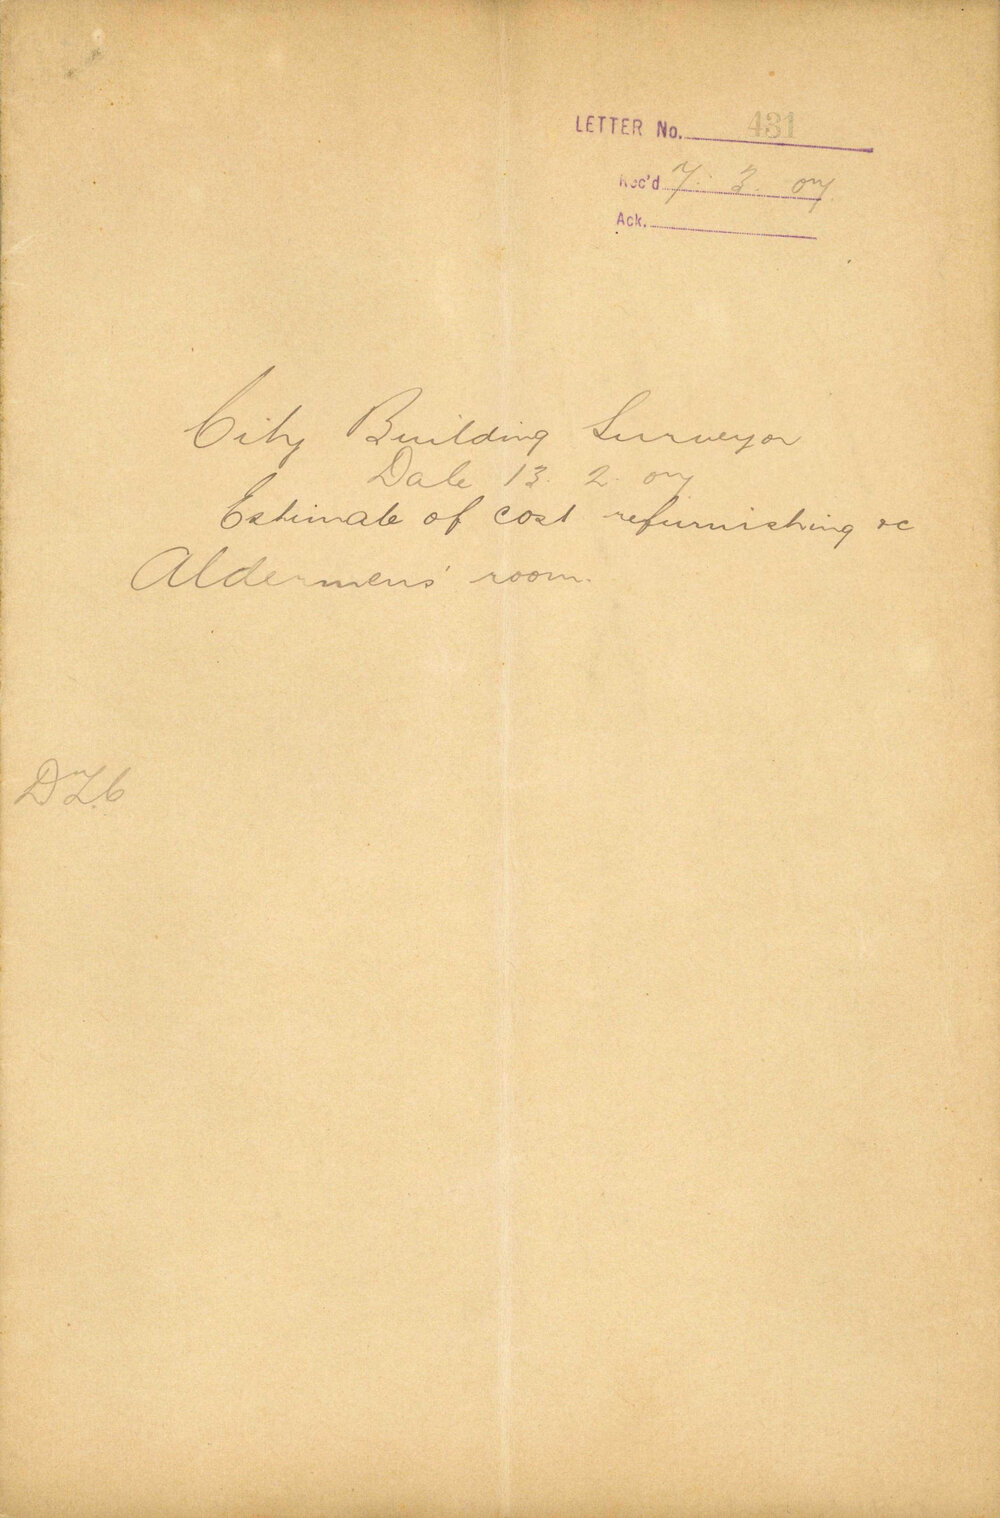 LETTER No. 431
Rec'd 7. 3. 07
Ack.
City Building Surveyor
Date 13. 2. 07
Estimate of cost refurnishing &c
Aldermens' room.